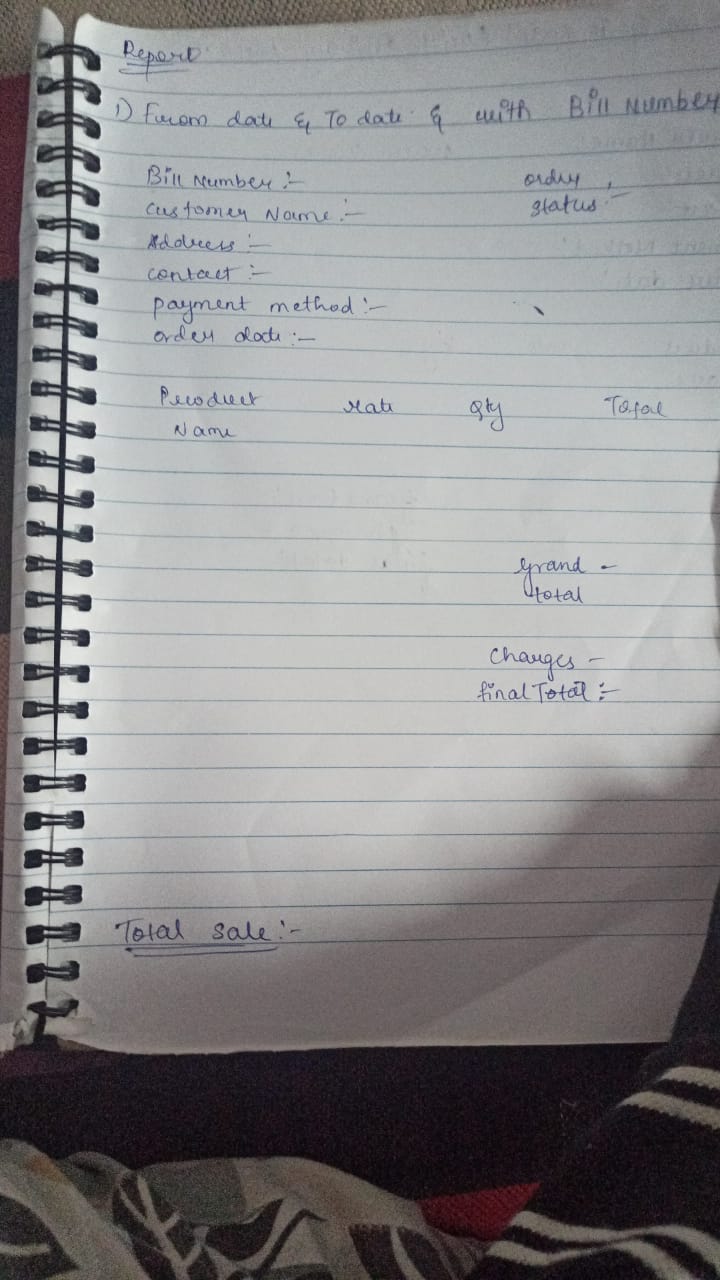 Report
1) From date & To date & with Bill Number
Bill Number :-
order status :-
Customer Name :-
Address :-
contact :-
payment method :-
order date :-
Product Name
rate
Qty
Total
grand total -
Charges -
final Total :-
Total sale :-